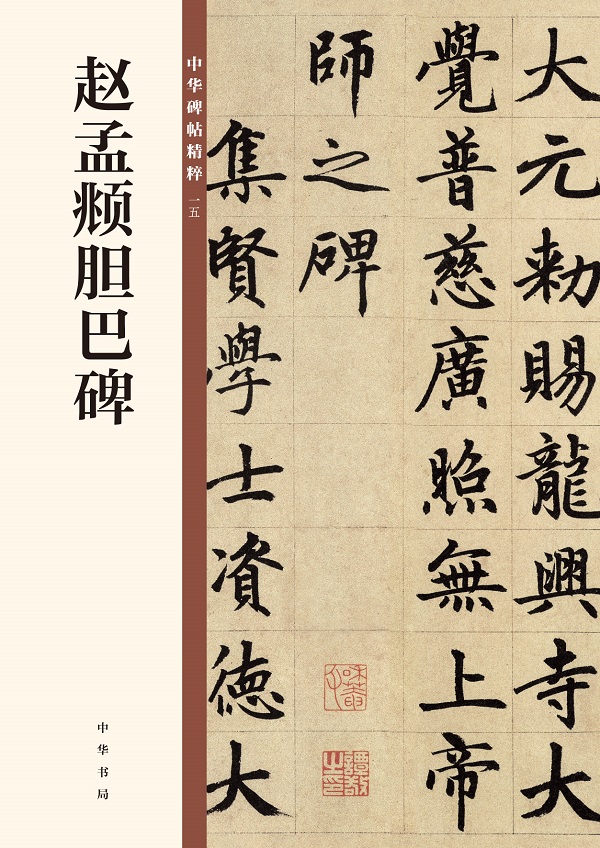 赵孟𫖯胆巴碑
中华碑帖精粹 一五
中华书局
大元勅賜龍興寺大
覺普慈廣照無上帝
師之碑
集賢學士資德大